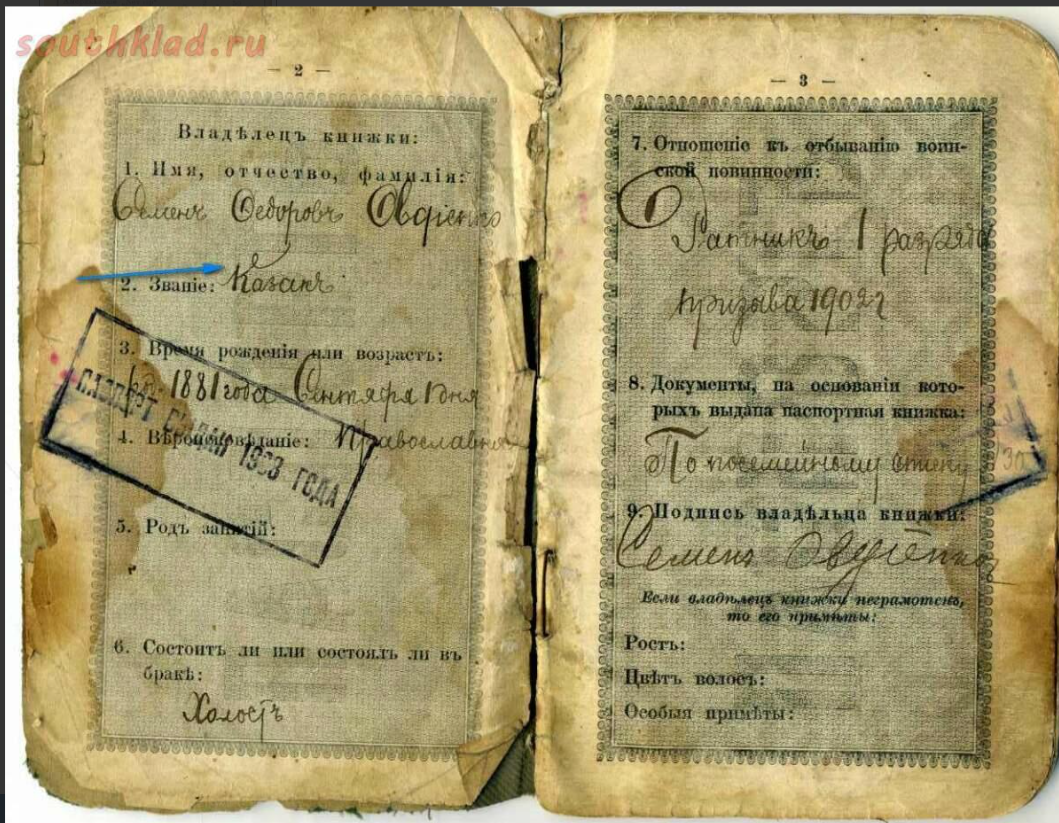 southklad.ru
— 2 —
Владѣлецъ книжки:
1. Имя, отчество, фамилія:
Семенъ Федоровъ Овдіенко
2. Званіе: Казакъ
3. Время рожденія или возрастъ:
1881 года Сентября 1 дня
4. Вѣроисповѣданіе: Православное
ПАСПОРТ 1933 ГОДА
5. Родъ занятій:
6. Состоитъ ли или состоялъ ли въ
бракѣ:
Холостъ
— 3 —
7. Отношеніе къ отбыванію воин-
ской повинности:
Ратникъ 1 разряда
призыва 1902 г
8. Документы, на основаніи кото-
рыхъ выдана паспортная книжка:
По посемейному списку
9. Подпись владѣльца книжки:
Семенъ Овдіенко
Если владѣлецъ книжки неграмотенъ,
то его примѣты:
Ростъ:
Цвѣтъ волосъ:
Особыя примѣты: